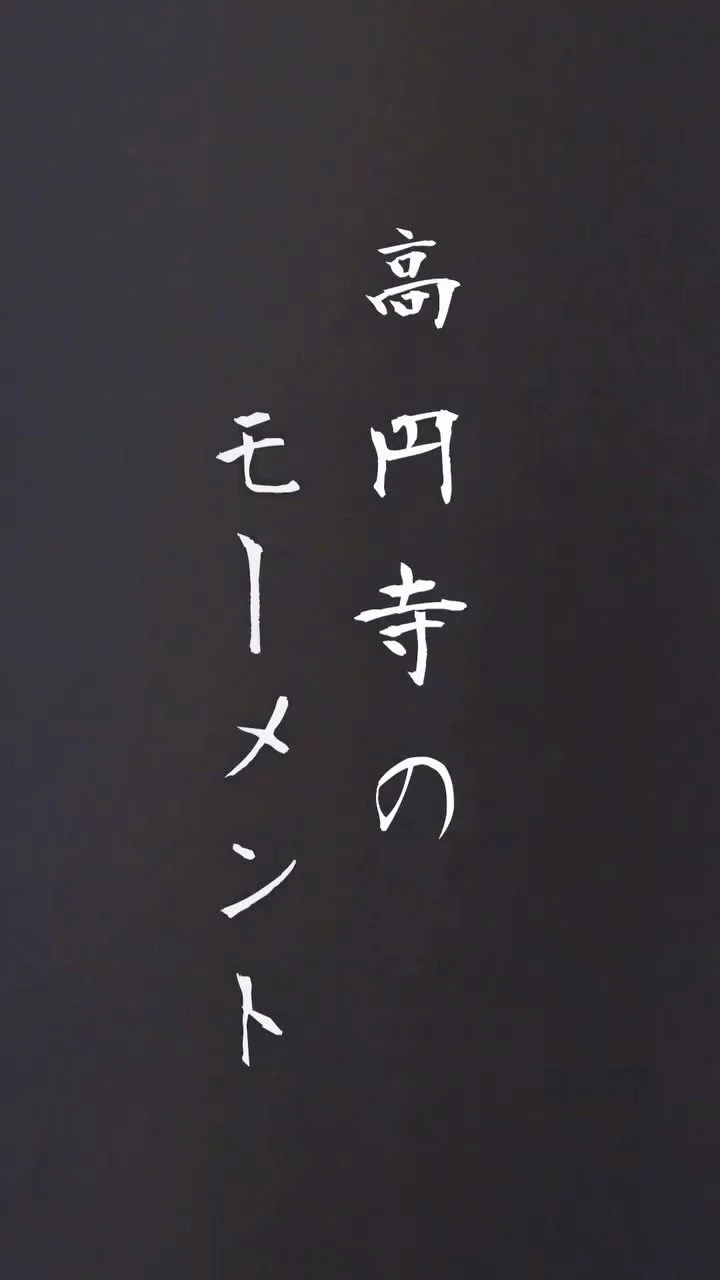 高円寺の
モーメント